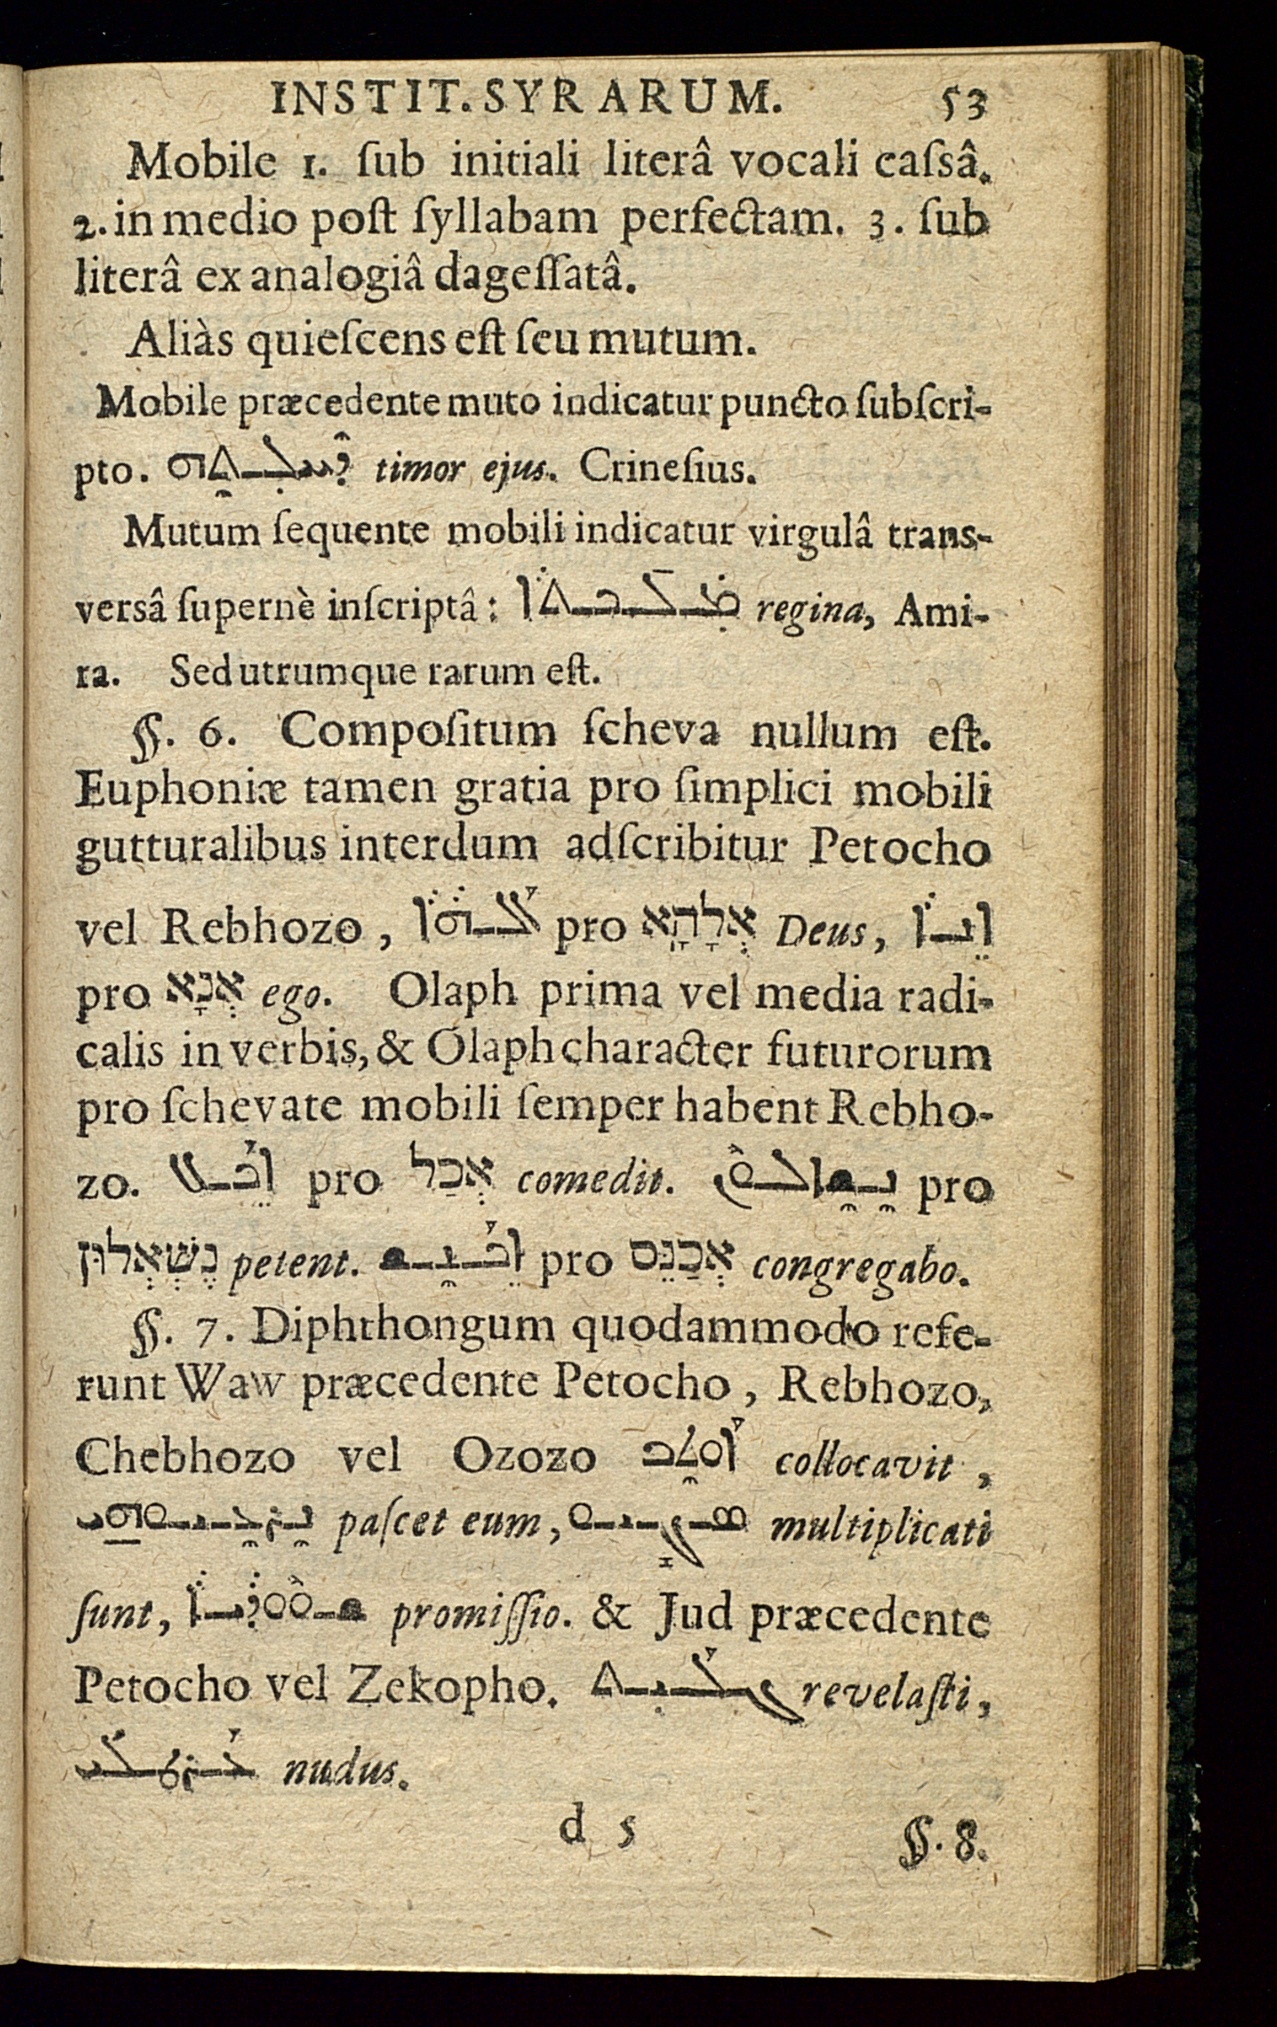 INSTIT. SYRARUM. 53
Mobile 1. ſub initiali literâ vocali caſsâ.
2. in medio poſt ſyllabam perfectam. 3. ſub
literâ ex analogiâ dageſſatâ.
Aliàs quieſcens eſt ſeu mutum.
Mobile præcedente muto indicatur puncto ſubſcri-
pto. ܕܚܠܬܗ timor ejus. Crineſius.
Mutum ſequente mobili indicatur virgulâ trans-
versâ ſupernè inſcriptâ: ܡܠܟܬܐ regina, Ami-
ra. Sed utrumque rarum eſt.
§. 6. Compoſitum ſcheva nullum eſt.
Euphoniæ tamen gratia pro ſimplici mobili
gutturalibus interdum adſcribitur Petocho
vel Rebhozo, ܐܠܗܐ pro אְלָהָא Deus, ܐܢܐ
pro אְנָא ego. Olaph prima vel media radi-
calis in verbis, & Olaph character futurorum
pro ſchevate mobili ſemper habent Rebho-
zo. ܐܟܠ pro אְכַל comedit. ܢܫܐܠܘܢ pro
נֶשְׁאְלוּן petent. ܐܟܢܫ pro אְכַנֵּס congregabo.
§. 7. Diphthongum quodammodo refe-
runt Waw præcedente Petocho, Rebhozo,
Chebhozo vel Ozozo ܐܘܬܒ collocavit,
ܢܪܥܝܘܗܝ paſcet eum, ܣܓܝܘ multiplicati
ſunt, ܫܘܘܕܝܐ promiſſio. & Jud præcedente
Petocho vel Zekopho. ܓܠܝܬ revelaſti,
ܥܪܛܠܝ nudus.
d 5 §. 8.